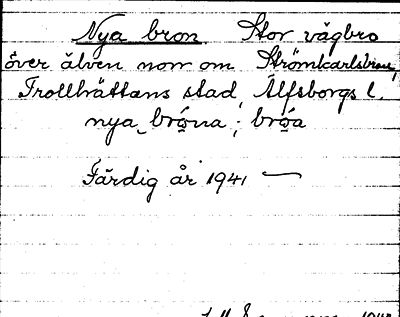 Nya bron Stor vägbro
över älven norr om Strömkarlsbron,
Trollhättans stad, Älfsborgs l.
nya brona; bróa
Färdig år 1941 —